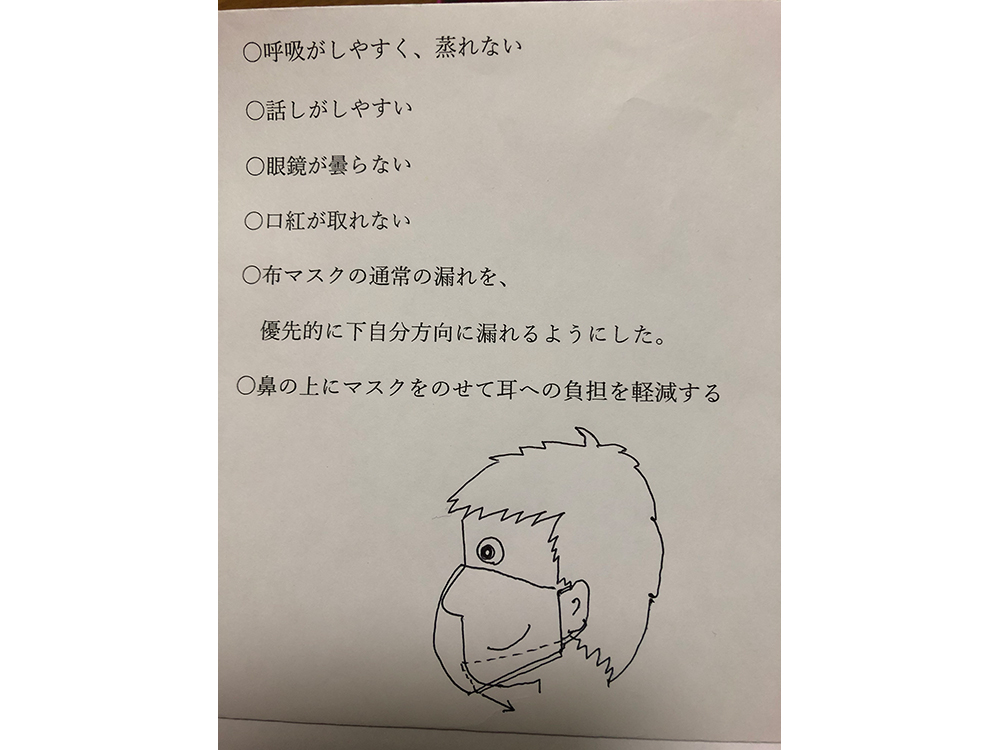 〇呼吸がしやすく、蒸れない
〇話しがしやすい
〇眼鏡が曇らない
〇口紅が取れない
〇布マスクの通常の漏れを、
優先的に下自分方向に漏れるようにした。
〇鼻の上にマスクをのせて耳への負担を軽減する